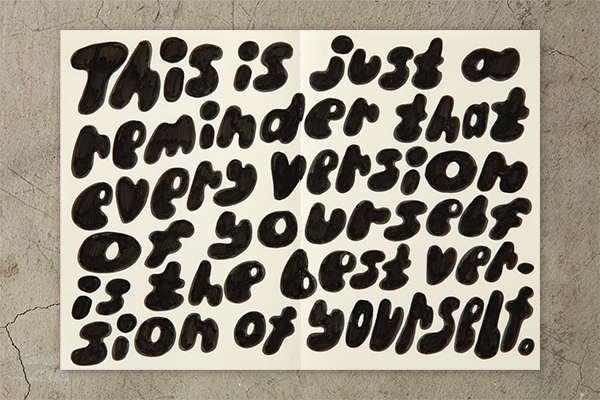 This is just a
reminder that
every version
of yourself
is the best ver-
sion of yourself.